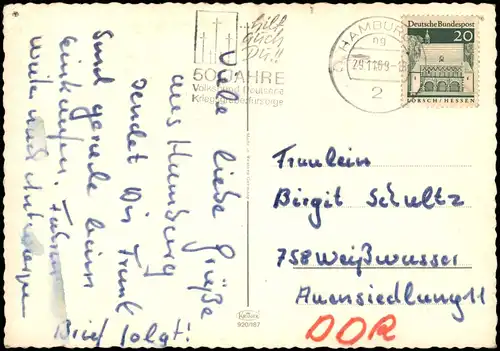 hilf
auch
Du!!
50 JAHRE
Volksbund Deutsche
Kriegsgräberfürsorge
HAMBURG
29.11.69-18
2
Deutsche Bundespost
20
LORSCH/HESSEN
Viele liebe Grüße
aus Hamburg
sendet Dir Frank
Sind gerade beim
einkaufen. Fahren
weiter nach
Brief folgt!
Fraulein
Birgit Schultz
758 Weißwasser
Auensiedlung 11
DDR
KRÜGER
920/187